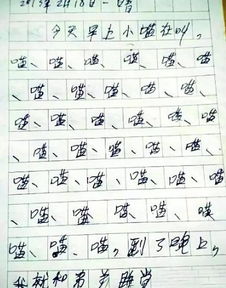 2015年2月18日 一 晴
今天早上小喵在叫，
喵、喵、喵、喵、喵、喵
、喵、喵、喵、喵、喵、
喵、喵、喵、喵、喵、喵
、喵、喵、喵、喵、喵、
喵、喵、喵、喵、喵、喵
、喵、喵、喵、喵、喵
喵、喵、喵，到了晚上，
我就和弟弟睡觉